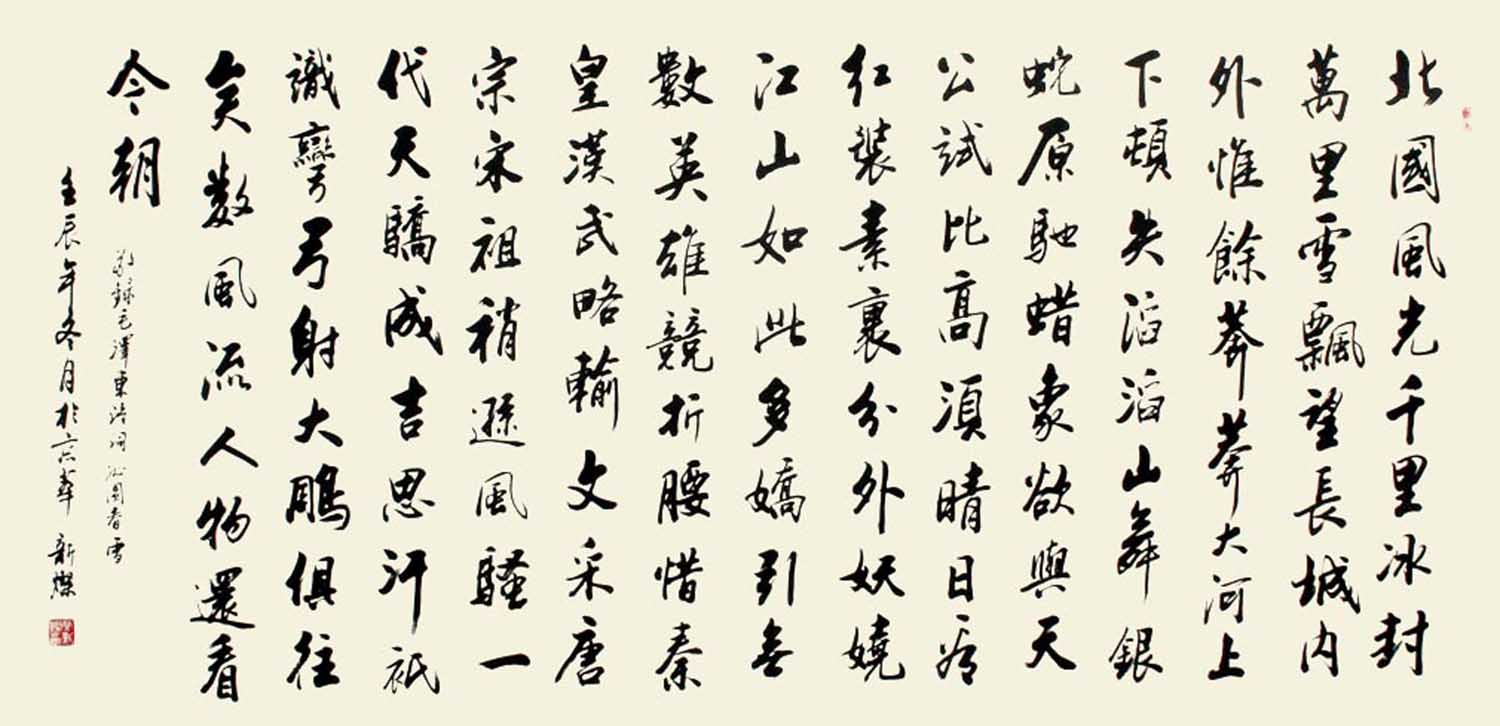 北國風光千里冰封
萬里雪飄望長城内
外惟餘莽莽大河上
下頓失滔滔山舞銀
蛇原馳蜡象欲與天
公試比高須晴日看
红裝素裹分外妖嬈
江山如此多嬌引無
數英雄競折腰惜秦
皇漢武略輸文采唐
宗宋祖稍遜風騷一
代天驕成吉思汗祇
識彎弓射大鵰俱往
矣数風流人物還看
今朝
敬錄毛澤東詩詞沁園春雪
壬辰年冬月於 新燦